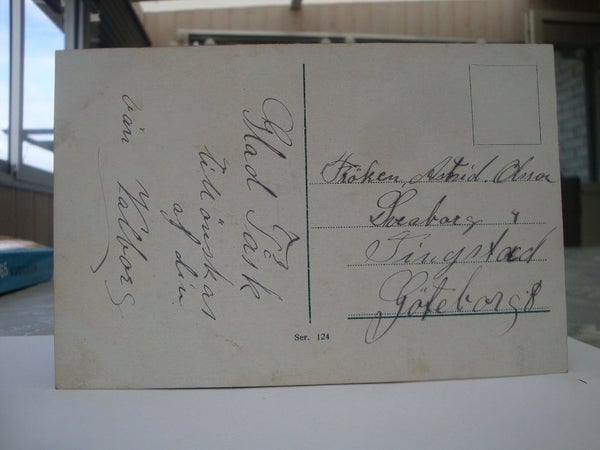 Glad Påsk
tillönskas
af din
vän Valborg
Fröken, Astrid. Olsson
Sveaborg
Tingstad
Göteborg 8
Ser. 124